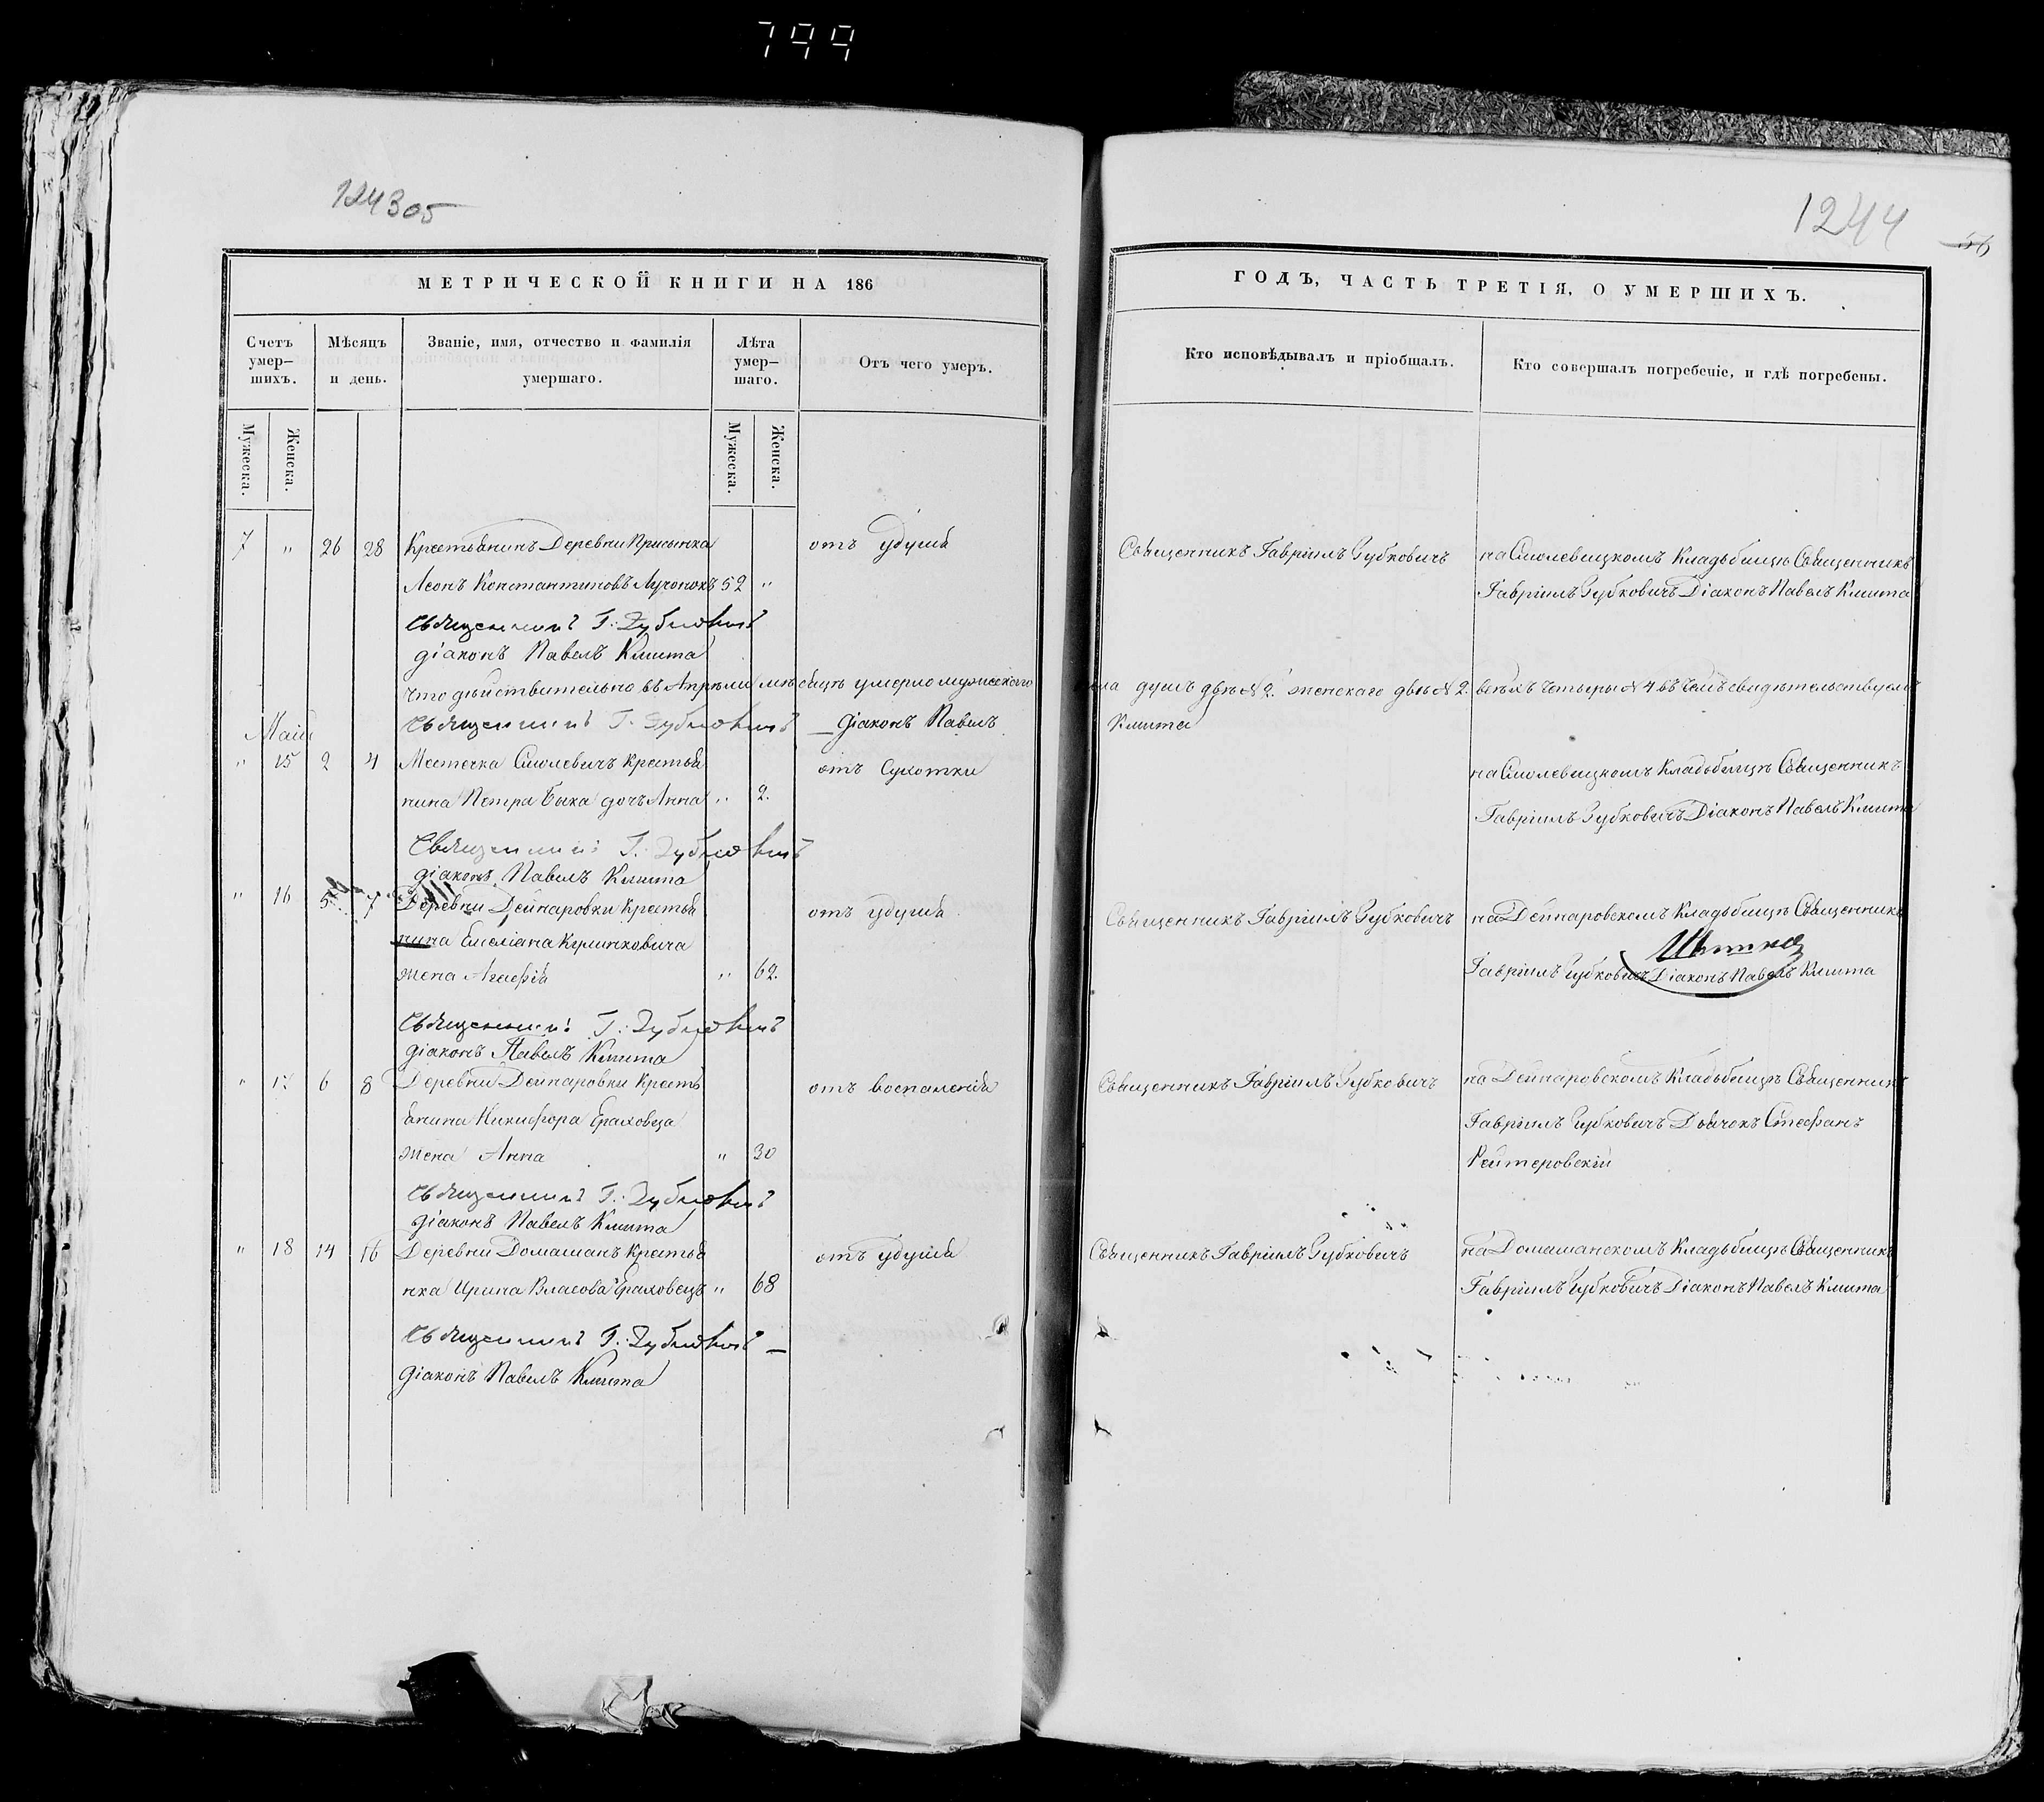 799
124305
1244
56
МЕТРИЧЕСКОЙ КНИГИ НА 186
ГОДЪ, ЧАСТЬ ТРЕТІЯ, О УМЕРШИХЪ.
Счетъ умер—шихъ.
Мѣсяцъ и день.
Званіе, имя, отчество и фамилія умершаго.
Лѣта умер—шаго.
Отъ чего умеръ.
Кто исповѣдывалъ и пріобщалъ.
Кто совершалъ погребеніе, и гдѣ погребены.
Мужеска.
Женска.
Мужеска.
Женска.
7 " 26 28 Крестьянинъ Деревни Присынка отъ удушья Священникъ Гавріилъ Зубковичъ на Смолевицкомъ Кладьбищѣ Священникъ
Леонъ Константиновъ Лучонокъ 52 " Гавріилъ Зубковичъ Діаконъ Павелъ Кмита
Священникъ Г: Зубковичъ
діаконъ Павелъ Кмита
что дѣйствительно въ Апрѣли мѣсяцѣ умерло мужескаго пола душъ двѣ №2. женскаго двѣ №2. всѣхъ четыры №4 въ чемъ свидѣтельствуемъ
Священникъ Г: Зубковичъ — Діаконъ Павелъ Кмита
Маій
" 15 2 4 Местечка Смолевичъ Крестья отъ Сухотки на Смолевицкомъ Кладьбищѣ Священникъ
нина Петра Быка дочь Анна " 2. Гавріилъ Зубковичъ Діаконъ Павелъ Кмита
Священникъ Г: Зубковичъ
діаконъ Павелъ Кмита
" 16 5 7 Деревни Дейнаровки Крестья отъ удушья Священникъ Гавріилъ Зубковичъ на Дейнаровскомъ Кладьбищѣ Священникъ
нина Емеліана Кулинковича
жена Агафія " 62. Гавріилъ Зубковичъ Діаконъ Павелъ Кмита
Священникъ Г: Зубковичъ
діаконъ Павелъ Кмита
" 17 6 8 Деревни Дейнаровки Кресть отъ воспаленія Священникъ Гавріилъ Зубковичъ на Дейнаровскомъ Кладьбищѣ Священникъ
янина Никифора Ераховца Гавріилъ Зубковичъ Дьячокъ Стефанъ
жена Анна " 30 Рейтеровскій
Священникъ Г: Зубковичъ
діаконъ Павелъ Кмита
" 18 14 16 Деревни Домашанъ Крестья отъ удушья Священникъ Гавріилъ Зубковичъ на Домашанскомъ Кладьбищѣ Священникъ
нка Ирина Власова Ераховецъ " 68 Гавріилъ Зубковичъ Діаконъ Павелъ Кмита
Священникъ Г: Зубковичъ —
діаконъ Павелъ Кмита